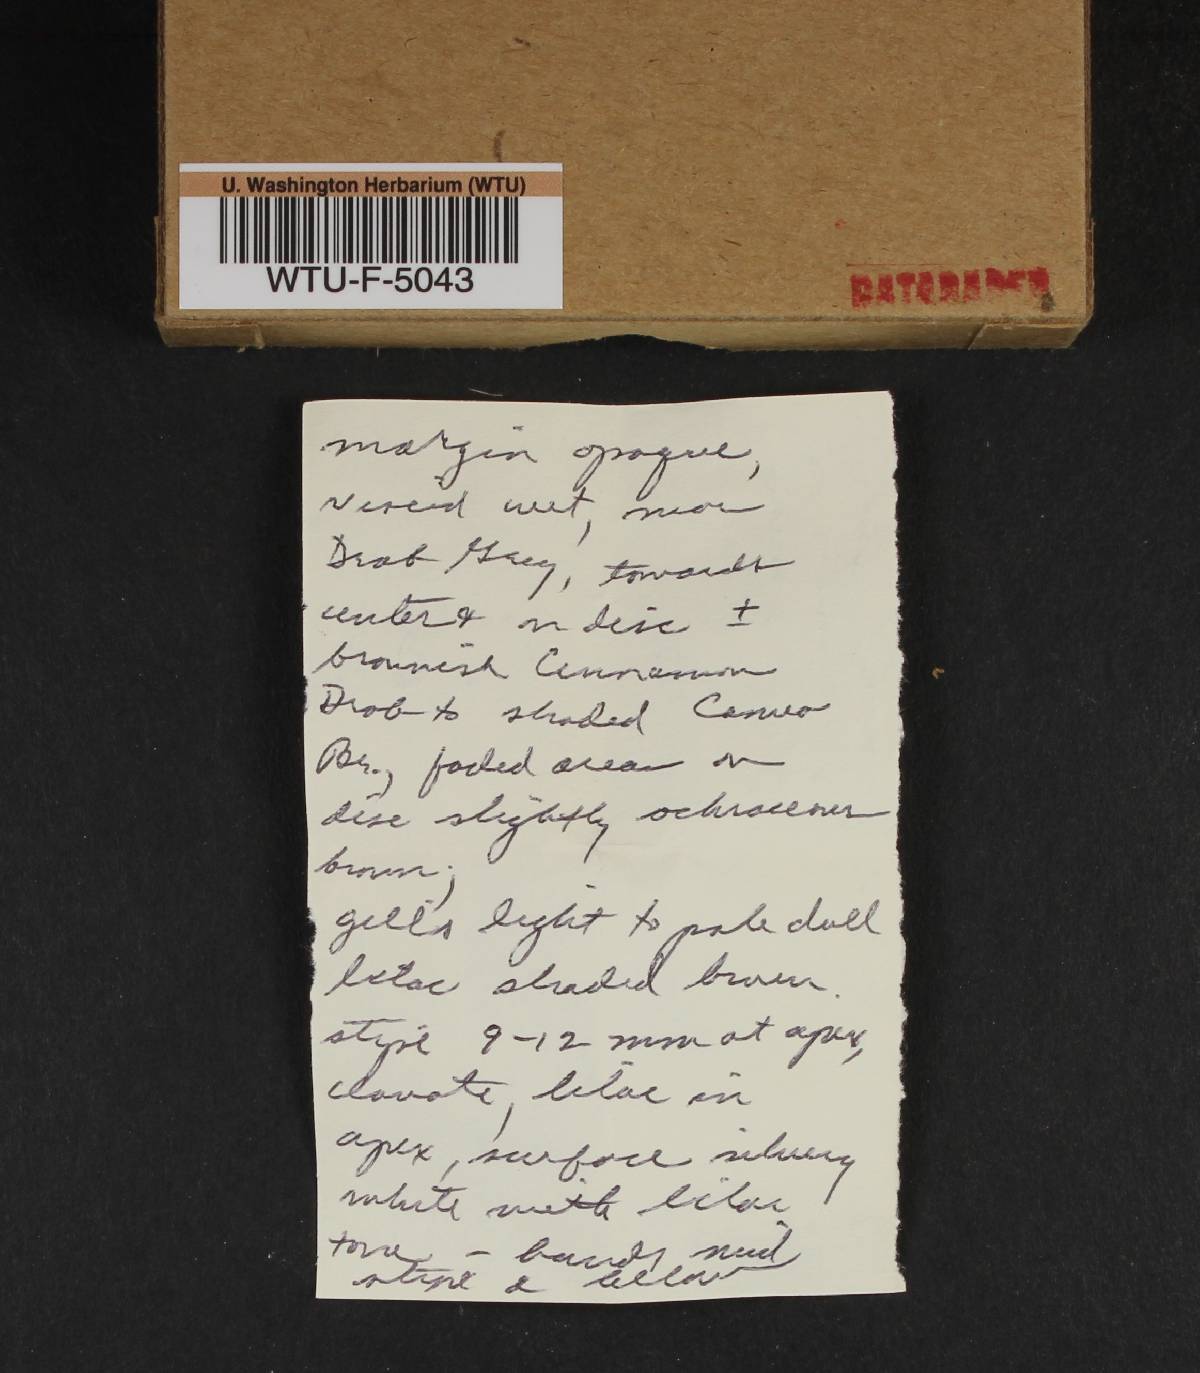 U. Washington Herbarium (WTU)
WTU-F-5043
DATABASED
margin opaque,
viscid wet, near
Drab Gray, towards
center & on disc ±
brownish Cinnamon
Drab to shaded Cameo
Br., faded areas on
disc slightly ochraceous
brown;
gills light to pale dull
lilac shaded brown.
stipe 9-12 mm at apex,
clavate, lilac in
apex, surface silvery
white with lilac
tone - bands mid
stipe & below